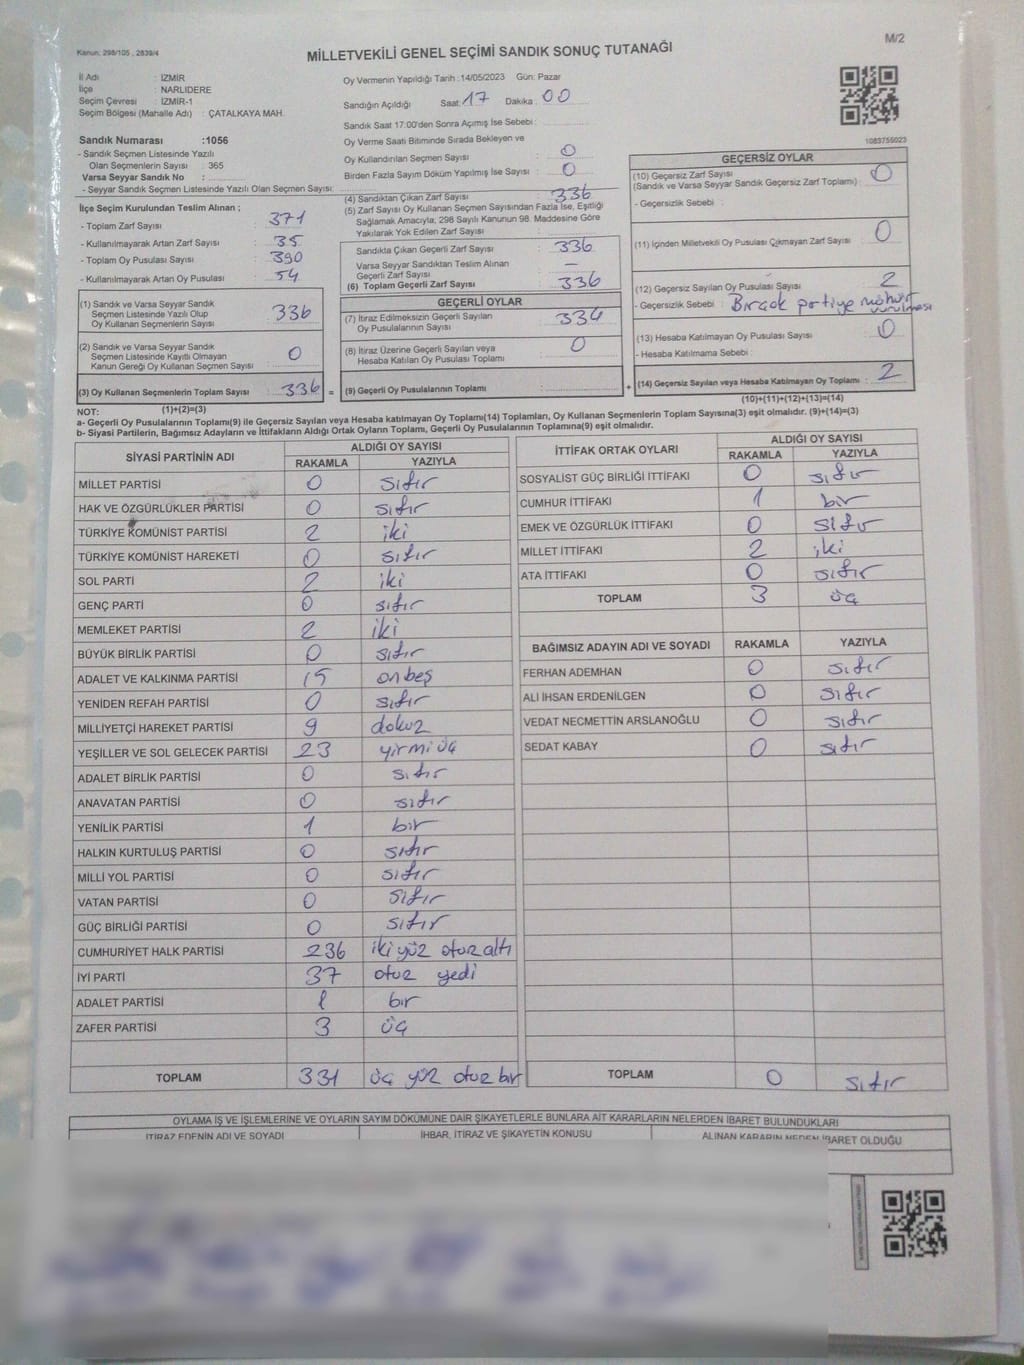 Kanun: 298/105 , 2839/4
M/2
MİLLETVEKİLİ GENEL SEÇİMİ SANDIK SONUÇ TUTANAĞI
İl Adı : İZMİR
İlçe : NARLIDERE
Seçim Çevresi : İZMİR-1
Seçim Bölgesi (Mahalle Adı) : ÇATALKAYA MAH.
Sandık Numarası :1056
- Sandık Seçmen Listesinde Yazılı
Olan Seçmenlerin Sayısı : 365
Varsa Seyyar Sandık No :
- Seyyar Sandık Seçmen Listesinde Yazılı Olan Seçmen Sayısı:
Oy Vermenin Yapıldığı Tarih :14/05/2023 Gün: Pazar
Sandığın Açıldığı Saat: 17 Dakika : 00
Sandık Saat 17:00'den Sonra Açımış İse Sebebi :
Oy Verme Saati Bitiminde Sırada Bekleyen ve
Oy Kullandırılan Seçmen Sayısı : 0
Birden Fazla Sayım Döküm Yapılmış İse Sayısı : 0
1083755023
İlçe Seçim Kurulundan Teslim Alınan ;
- Toplam Zarf Sayısı : 371
- Kullanılmayarak Artan Zarf Sayısı : 35
- Toplam Oy Pusulası Sayısı : 390
- Kullanılmayarak Artan Oy Pusulası : 54
(1) Sandık ve Varsa Seyyar Sandık
Seçmen Listesinde Yazılı Olup
Oy Kullanan Seçmenlerin Sayısı : 336
(2) Sandık ve Varsa Seyyar Sandık
Seçmen Listesinde Kayıtlı Olmayan
Kanun Gereği Oy Kullanan Seçmen Sayısı : 0
(3) Oy Kullanan Seçmenlerin Toplam Sayısı : 336 =
(1)+(2)=(3)
(4) Sandıktan Çıkan Zarf Sayısı : 336
(5) Zarf Sayısı Oy Kullanan Seçmen Sayısından Fazla İse, Eşitliği
Sağlamak Amacıyla, 298 Sayılı Kanunun 98. Maddesine Göre
Yakılarak Yok Edilen Zarf Sayısı :
Sandıkta Çıkan Geçerli Zarf Sayısı : 336
Varsa Seyyar Sandıktan Teslim Alınan
Geçerli Zarf Sayısı : —
(6) Toplam Geçerli Zarf Sayısı : 336
GEÇERLİ OYLAR
(7) İtiraz Edilmeksizin Geçerli Sayılan
Oy Pusulalarının Sayısı : 334
(8) İtiraz Üzerine Geçerli Sayılan veya
Hesaba Katılan Oy Pusulası Toplamı : 0
(9) Geçerli Oy Pusulalarının Toplamı : +
GEÇERSİZ OYLAR
(10) Geçersiz Zarf Sayısı
(Sandık ve Varsa Seyyar Sandık Geçersiz Zarf Toplamı) : 0
- Geçersizlik Sebebi :
(11) İçinden Milletvekili Oy Pusulası Çıkmayan Zarf Sayısı : 0
(12) Geçersiz Sayılan Oy Pusulası Sayısı : 2
- Geçersizlik Sebebi : Birçok partiye mühür vurulması
(13) Hesaba Katılmayan Oy Pusulası Sayısı : 0
- Hesaba Katılmama Sebebi :
(14) Geçersiz Sayılan veya Hesaba Katılmayan Oy Toplamı : 2
(10)+(11)+(12)+(13)=(14)
NOT:
a- Geçerli Oy Pusulalarının Toplamı(9) ile Geçersiz Sayılan veya Hesaba katılmayan Oy Toplamı(14) Toplamları, Oy Kullanan Seçmenlerin Toplam Sayısına(3) eşit olmalıdır. (9)+(14)=(3)
b- Siyasi Partilerin, Bağımsız Adayların ve İttifakların Aldığı Ortak Oyların Toplamı, Geçerli Oy Pusulalarının Toplamına(9) eşit olmalıdır.
SİYASİ PARTİNİN ADI ALDIĞI OY SAYISI
RAKAMLA YAZIYLA
MİLLET PARTİSİ 0 sıfır
HAK VE ÖZGÜRLÜKLER PARTİSİ 0 sıfır
TÜRKİYE KOMÜNİST PARTİSİ 2 iki
TÜRKİYE KOMÜNİST HAREKETİ 0 sıfır
SOL PARTİ 2 iki
GENÇ PARTİ 0 sıfır
MEMLEKET PARTİSİ 2 iki
BÜYÜK BİRLİK PARTİSİ 0 sıfır
ADALET VE KALKINMA PARTİSİ 15 onbeş
YENİDEN REFAH PARTİSİ 0 sıfır
MİLLİYETÇİ HAREKET PARTİSİ 9 dokuz
YEŞİLLER VE SOL GELECEK PARTİSİ 23 yirmi üç
ADALET BİRLİK PARTİSİ 0 sıfır
ANAVATAN PARTİSİ 0 sıfır
YENİLİK PARTİSİ 1 bir
HALKIN KURTULUŞ PARTİSİ 0 sıfır
MİLLİ YOL PARTİSİ 0 sıfır
VATAN PARTİSİ 0 sıfır
GÜÇ BİRLİĞİ PARTİSİ 0 sıfır
CUMHURİYET HALK PARTİSİ 236 iki yüz otuz altı
İYİ PARTİ 37 otuz yedi
ADALET PARTİSİ 1 bir
ZAFER PARTİSİ 3 üç
TOPLAM 331 üç yüz otuz bir
İTTİFAK ORTAK OYLARI ALDIĞI OY SAYISI
RAKAMLA YAZIYLA
SOSYALİST GÜÇ BİRLİĞİ İTTİFAKI 0 sıfır
CUMHUR İTTİFAKI 1 bir
EMEK VE ÖZGÜRLÜK İTTİFAKI 0 sıfır
MİLLET İTTİFAKI 2 iki
ATA İTTİFAKI 0 sıfır
TOPLAM 3 üç
BAĞIMSIZ ADAYIN ADI VE SOYADI RAKAMLA YAZIYLA
FERHAN ADEMHAN 0 sıfır
ALİ İHSAN ERDENİLGEN 0 sıfır
VEDAT NECMETTİN ARSLANOĞLU 0 sıfır
SEDAT KABAY 0 sıfır
TOPLAM 0 sıfır
OYLAMA İŞ VE İŞLEMLERİNE VE OYLARIN SAYIM DÖKÜMÜNE DAİR ŞİKAYETLERLE BUNLARA AİT KARARLARIN NELERDEN İBARET BULUNDUKLARI
İTİRAZ EDENİN ADI VE SOYADI İHBAR, İTİRAZ VE ŞİKAYETİN KONUSU ALINAN KARARIN NEDEN İBARET OLDUĞU